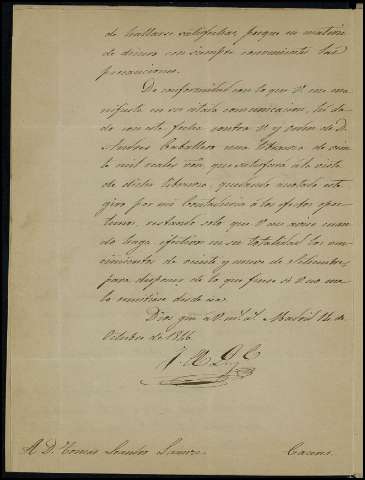 de hallarse satisfechas, porque en materia
de dinero son siempre convenientes las
precauciones.
De conformidad con lo que V. me ma-
nifiesta en su citada comunicacion, he da-
do con esta fecha contra V. y orden de D.
Andres Caballero una libranza de vein-
te mil reales von. que satisfará á la vista
de dicha libranza, quedando anotado este
giro por mi Contaduria á los efectos opor-
tunos, restando solo que V. me avise cuan-
do haga efectivos en su totalidad los ven-
cimientos de veinte y nueve de Setiembre,
para disponer de lo que fuese si V. no me
lo remitiese desde esa.
Dios gue. á V. ms. as. Madrid 14 de
Octubre de 1846.
A D. Tomas Leandro
Caceres.